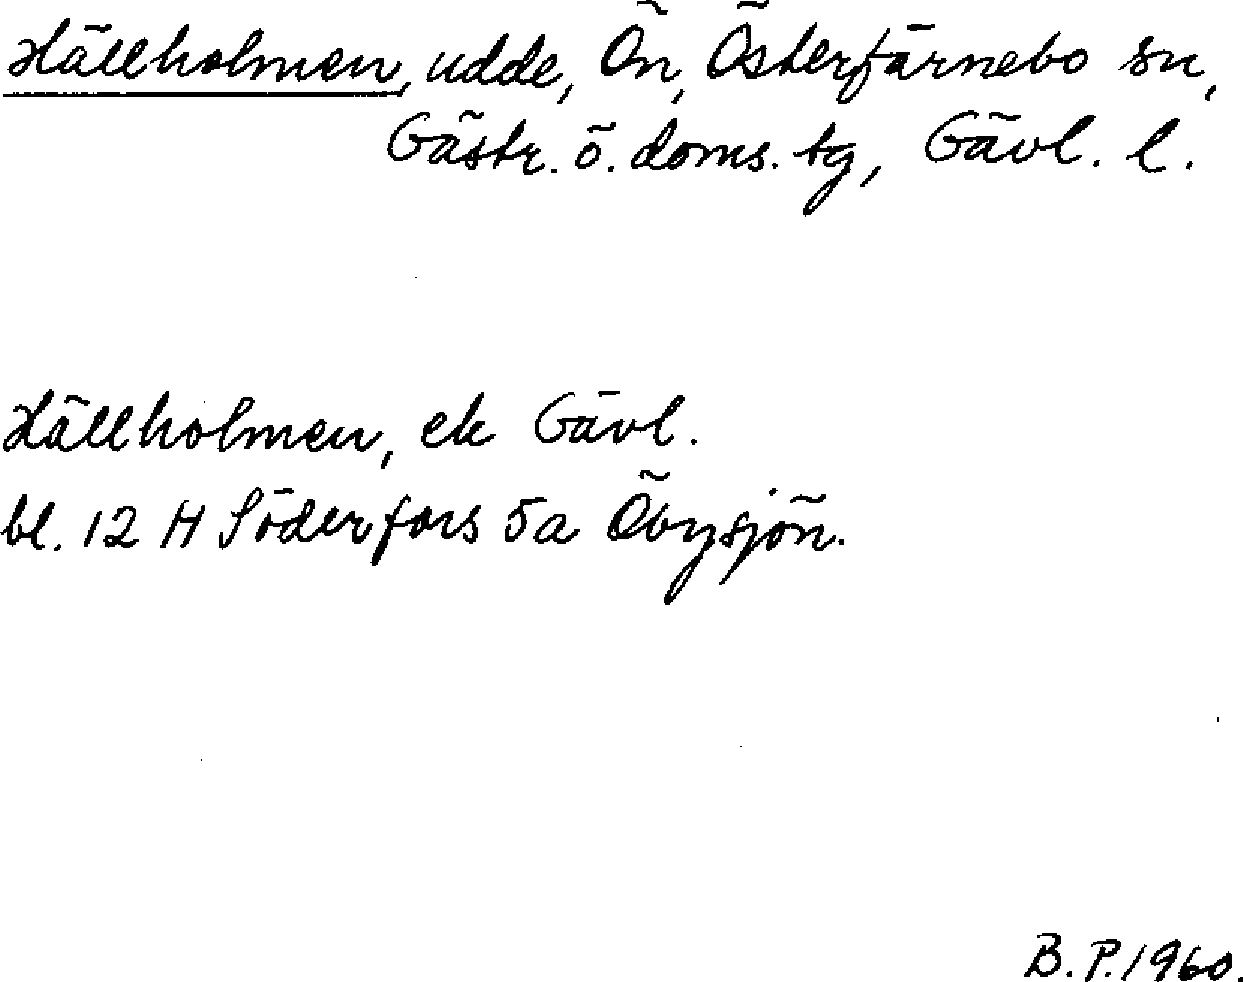 Hällholmen, udde, Ön, Österfärnebo sn,
Gästr. ö. doms. tg, Gävl. l.
Hällholmen, ek Gävl.
bl. 12 H Söderfors 5a Öbysjön.
B.P. 1960.